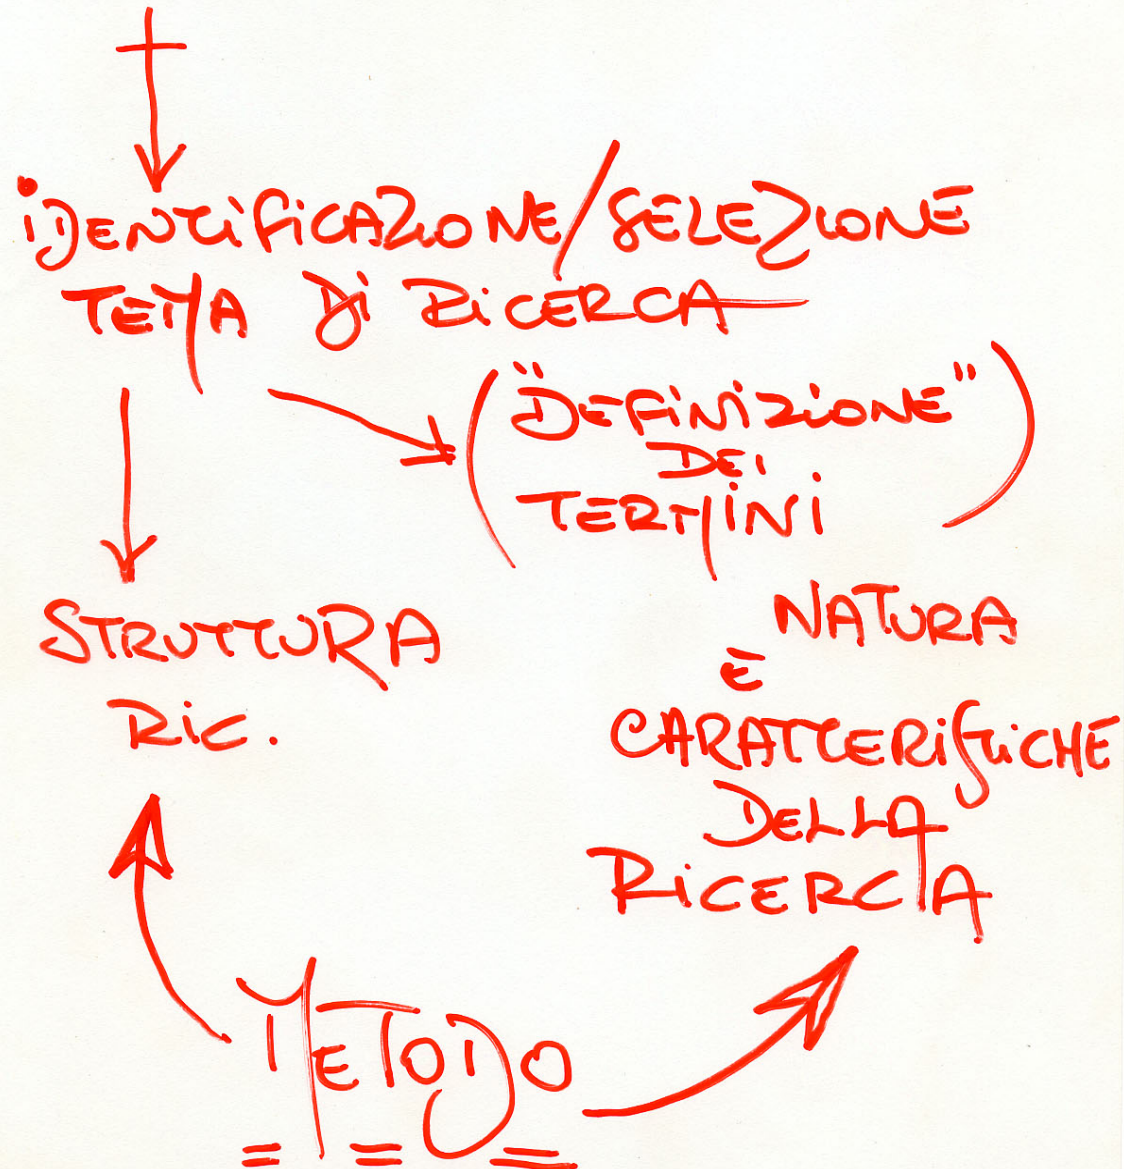 iDENTiFiCAZiONE/SELEZIONE
TEMA Di RiCERCA
("DEFiNiZiONE"
DEI
TERMiNi)
STRUTTURA
RiC.
NATURA
E
CARATTERiSTiCHE
DELLA
RiCERCA
METODO